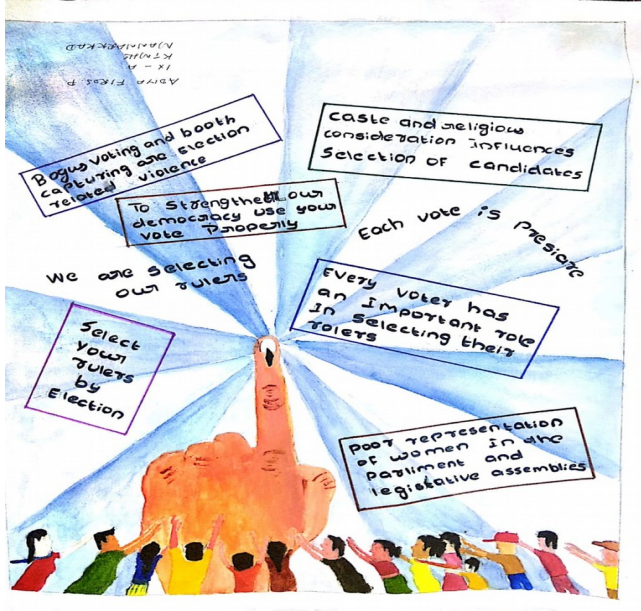 ADIYA FIROS. P
IX - A
KTMHS
MANNARKKAD
Bogus voting and booth
capturing are Election
related violence
caste and religious
consideration Influences
Selection of candidates
To Strengthen our
democracy use your
vote Properly
Each vote is Presiore
We are selecting
our rulers
Every voter has
an Important role
In selecting their
rolers
Select
your
rulers
by
Election
poor representation
of women In the
Parliment and
legislative assemblies